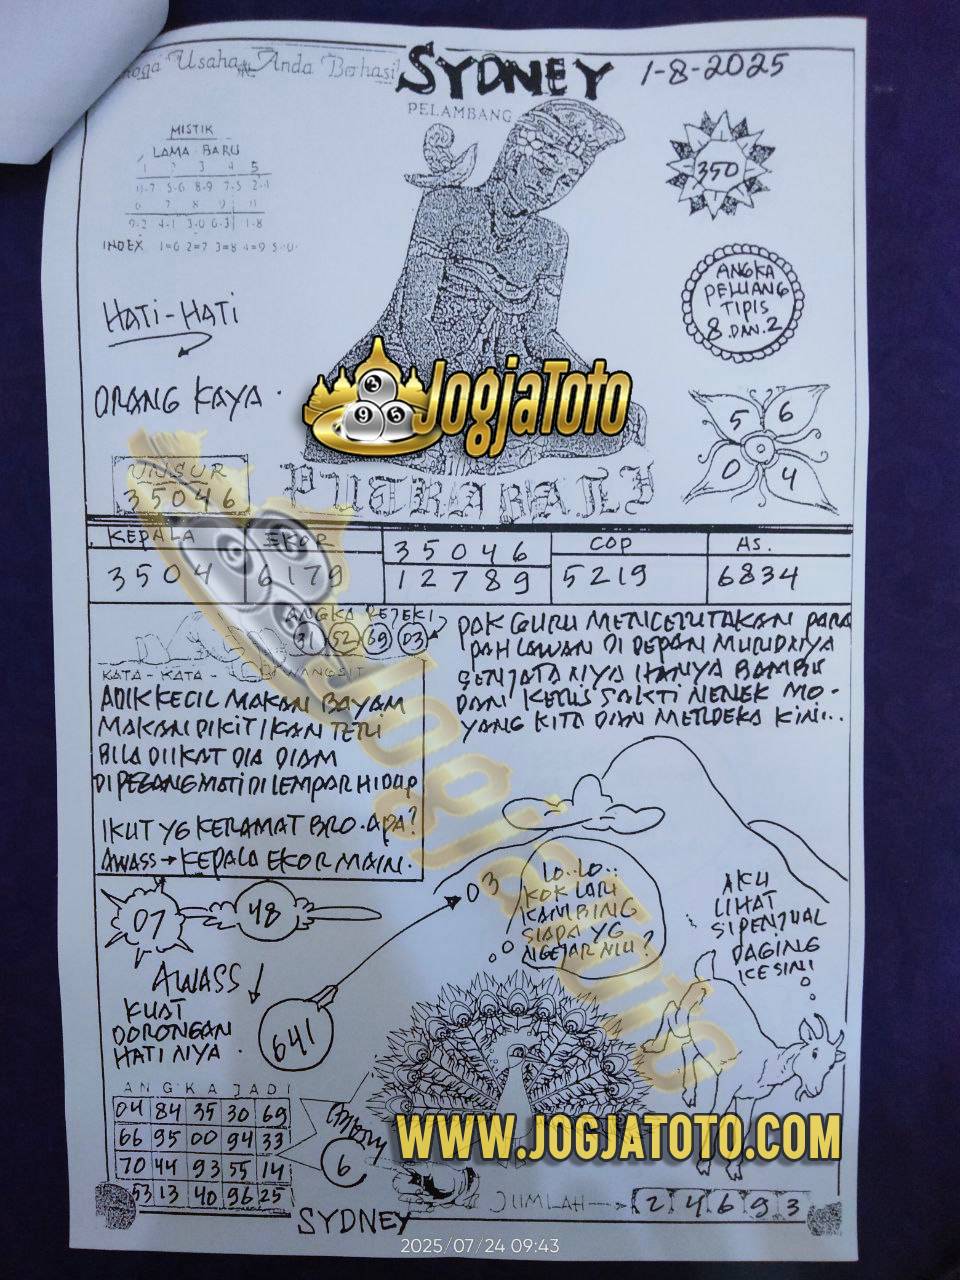 Usaha Anda Berhasil
SYDNEY
1-8-2025
PELAMBANG
MISTIK
LAMA BARU
1 2 3 4 5
11-7 5-6 8-9 7-5 2-1
6 7 8 9 11
9-2 4-1 3-0 6-3 1-8
INDEX 1=6 2=7 3=8 4=9 5=0
350
ANGKA
PELUANG
TIPIS
8 DAN 2
HATI-HATI
ORANG KAYA
JogjaToto
5 6
0 4
UNSUR
35046
PUTRA BALI
KEPALA
EKOR
35046
COP
AS.
3504
6179
12789
5219
6834
ANGKA REJEKI
21 52 69 03
KATA-KATA BERWANGSIT
ADIK KECIL MAKAN BAYAM
MAKAN DIKIT IKAN TERI
BILA DIIKAT DIA DIAM
DI PEGANG MATI DI LEMPAR HIDUP
IKUT YG KERAMAT BRO. APA?
AWASS → KEPALA EKOR MAIN.
PAK GURU MENCERITAKAN PARA
PAHLAWAN DI DEPAN MURIDNYA
SENJATA NYA HANYA BAMBU
DAN KERIS SAKTI NENEK MO-
YANG KITA DAN MERDEKA KINI...
07
48
03
LO..LO..
KOK LARI
KAMBING
SIAPA YG
NGEJAR NIU?
AKU
LIHAT
SIPENJUAL
DAGING
KESINI
AWASS
KUAT
DORONGAN
HATI NYA.
641
ANGKA JADI
04 84 35 30 69
66 95 00 94 33
70 44 93 55 14
53 13 40 96 25
6
JogjaToto
WWW.JOGJATOTO.COM
JUMLAH
2 4 6 9 3
SYDNEY
2025/07/24 09:43